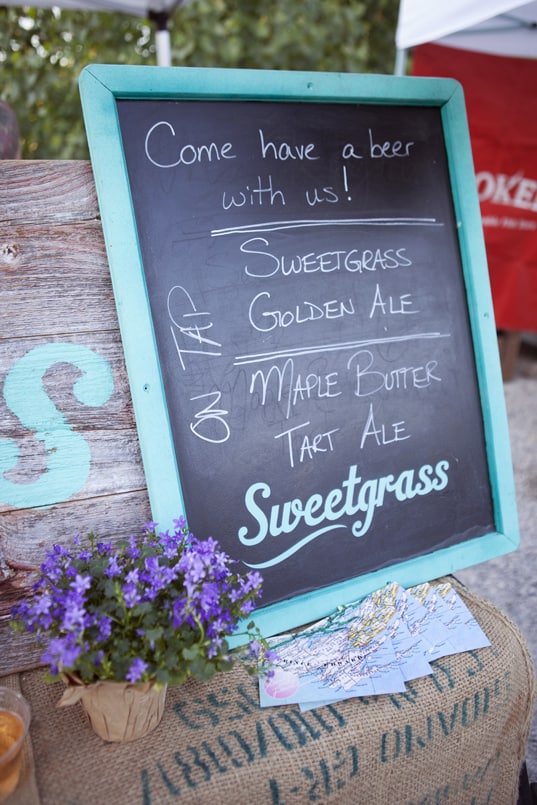 Come have a beer
with us!
ON TAP
SWEETGRASS
GOLDEN ALE
MAPLE BUTTER
TART ALE
Sweetgrass
S
OKE